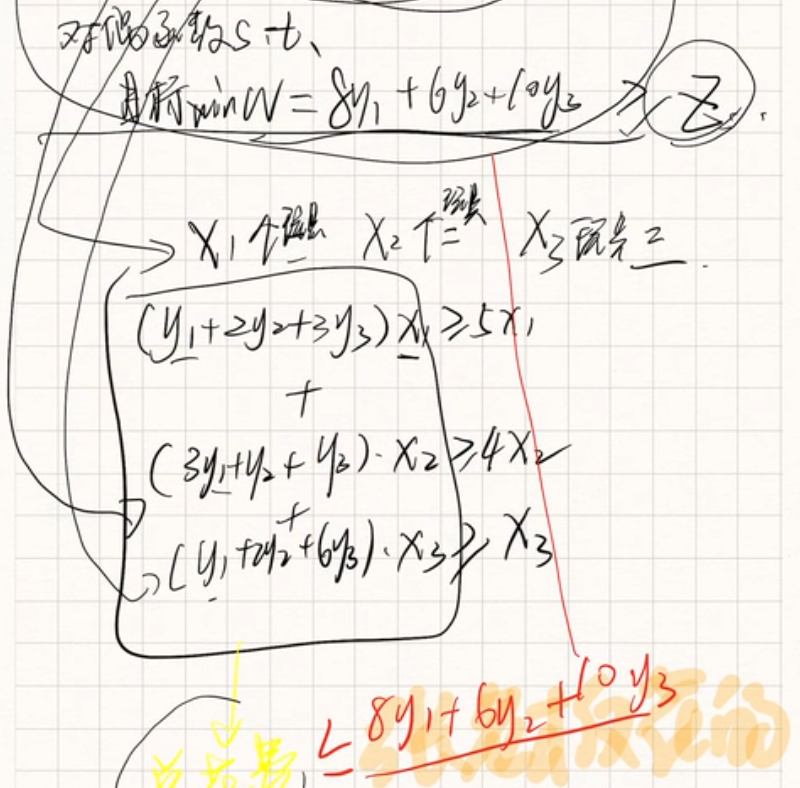 对偶函数s.t、
目标minW=8y₁+6y₂+10y₃ ≥ Z.
X₁个 X₂个二 X₃ 二.
(y₁+2y₂+3y₃)x₁≥5x₁
+
(3y₁+y₂+y₃)·x₂≥4x₂
+
(y₁+2y₂+6y₃)·x₃≥x₃
≤ 8y₁+6y₂+10y₃